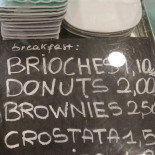 breakfast:
BRIOCHES 1,10
DONUTS 2,00
BROWNIES 2,50
CROSTATA 1,5